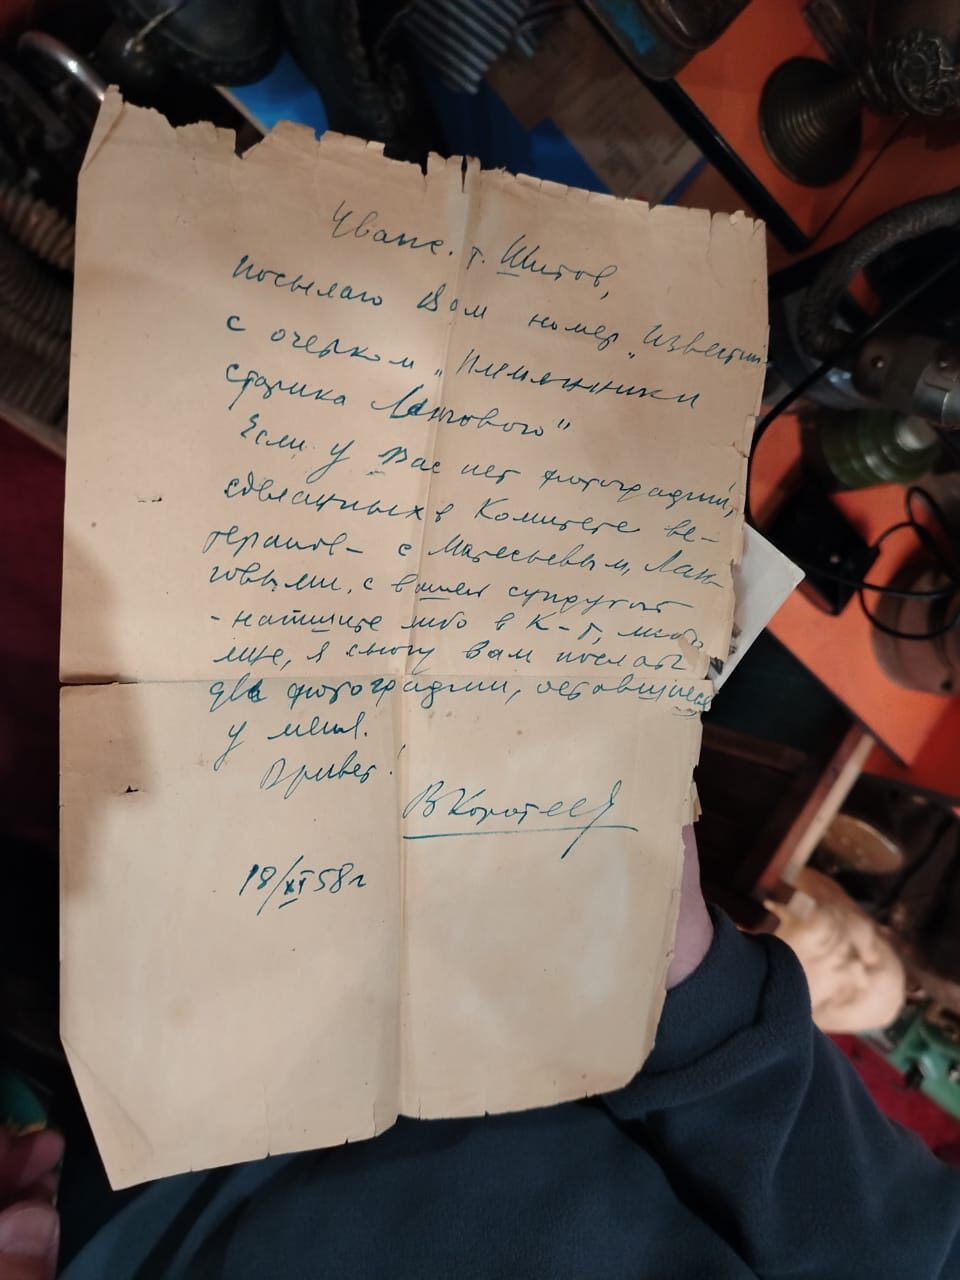 Уваж. т. Шитов,
посылаю Вам номер „Известий
с очерком „Племянники
старика Лангового"
Если у Вас нет фотографий,
сделанных в Комитете ве-
теранов - с Матесьевым, Лан-
говыми, с вашей супругой
- напишите либо в К-т, либо
мне, я смогу Вам послать
две фотографии, оставшиеся
у меня.
Привет!
В Коротеев
18/XI 58 г